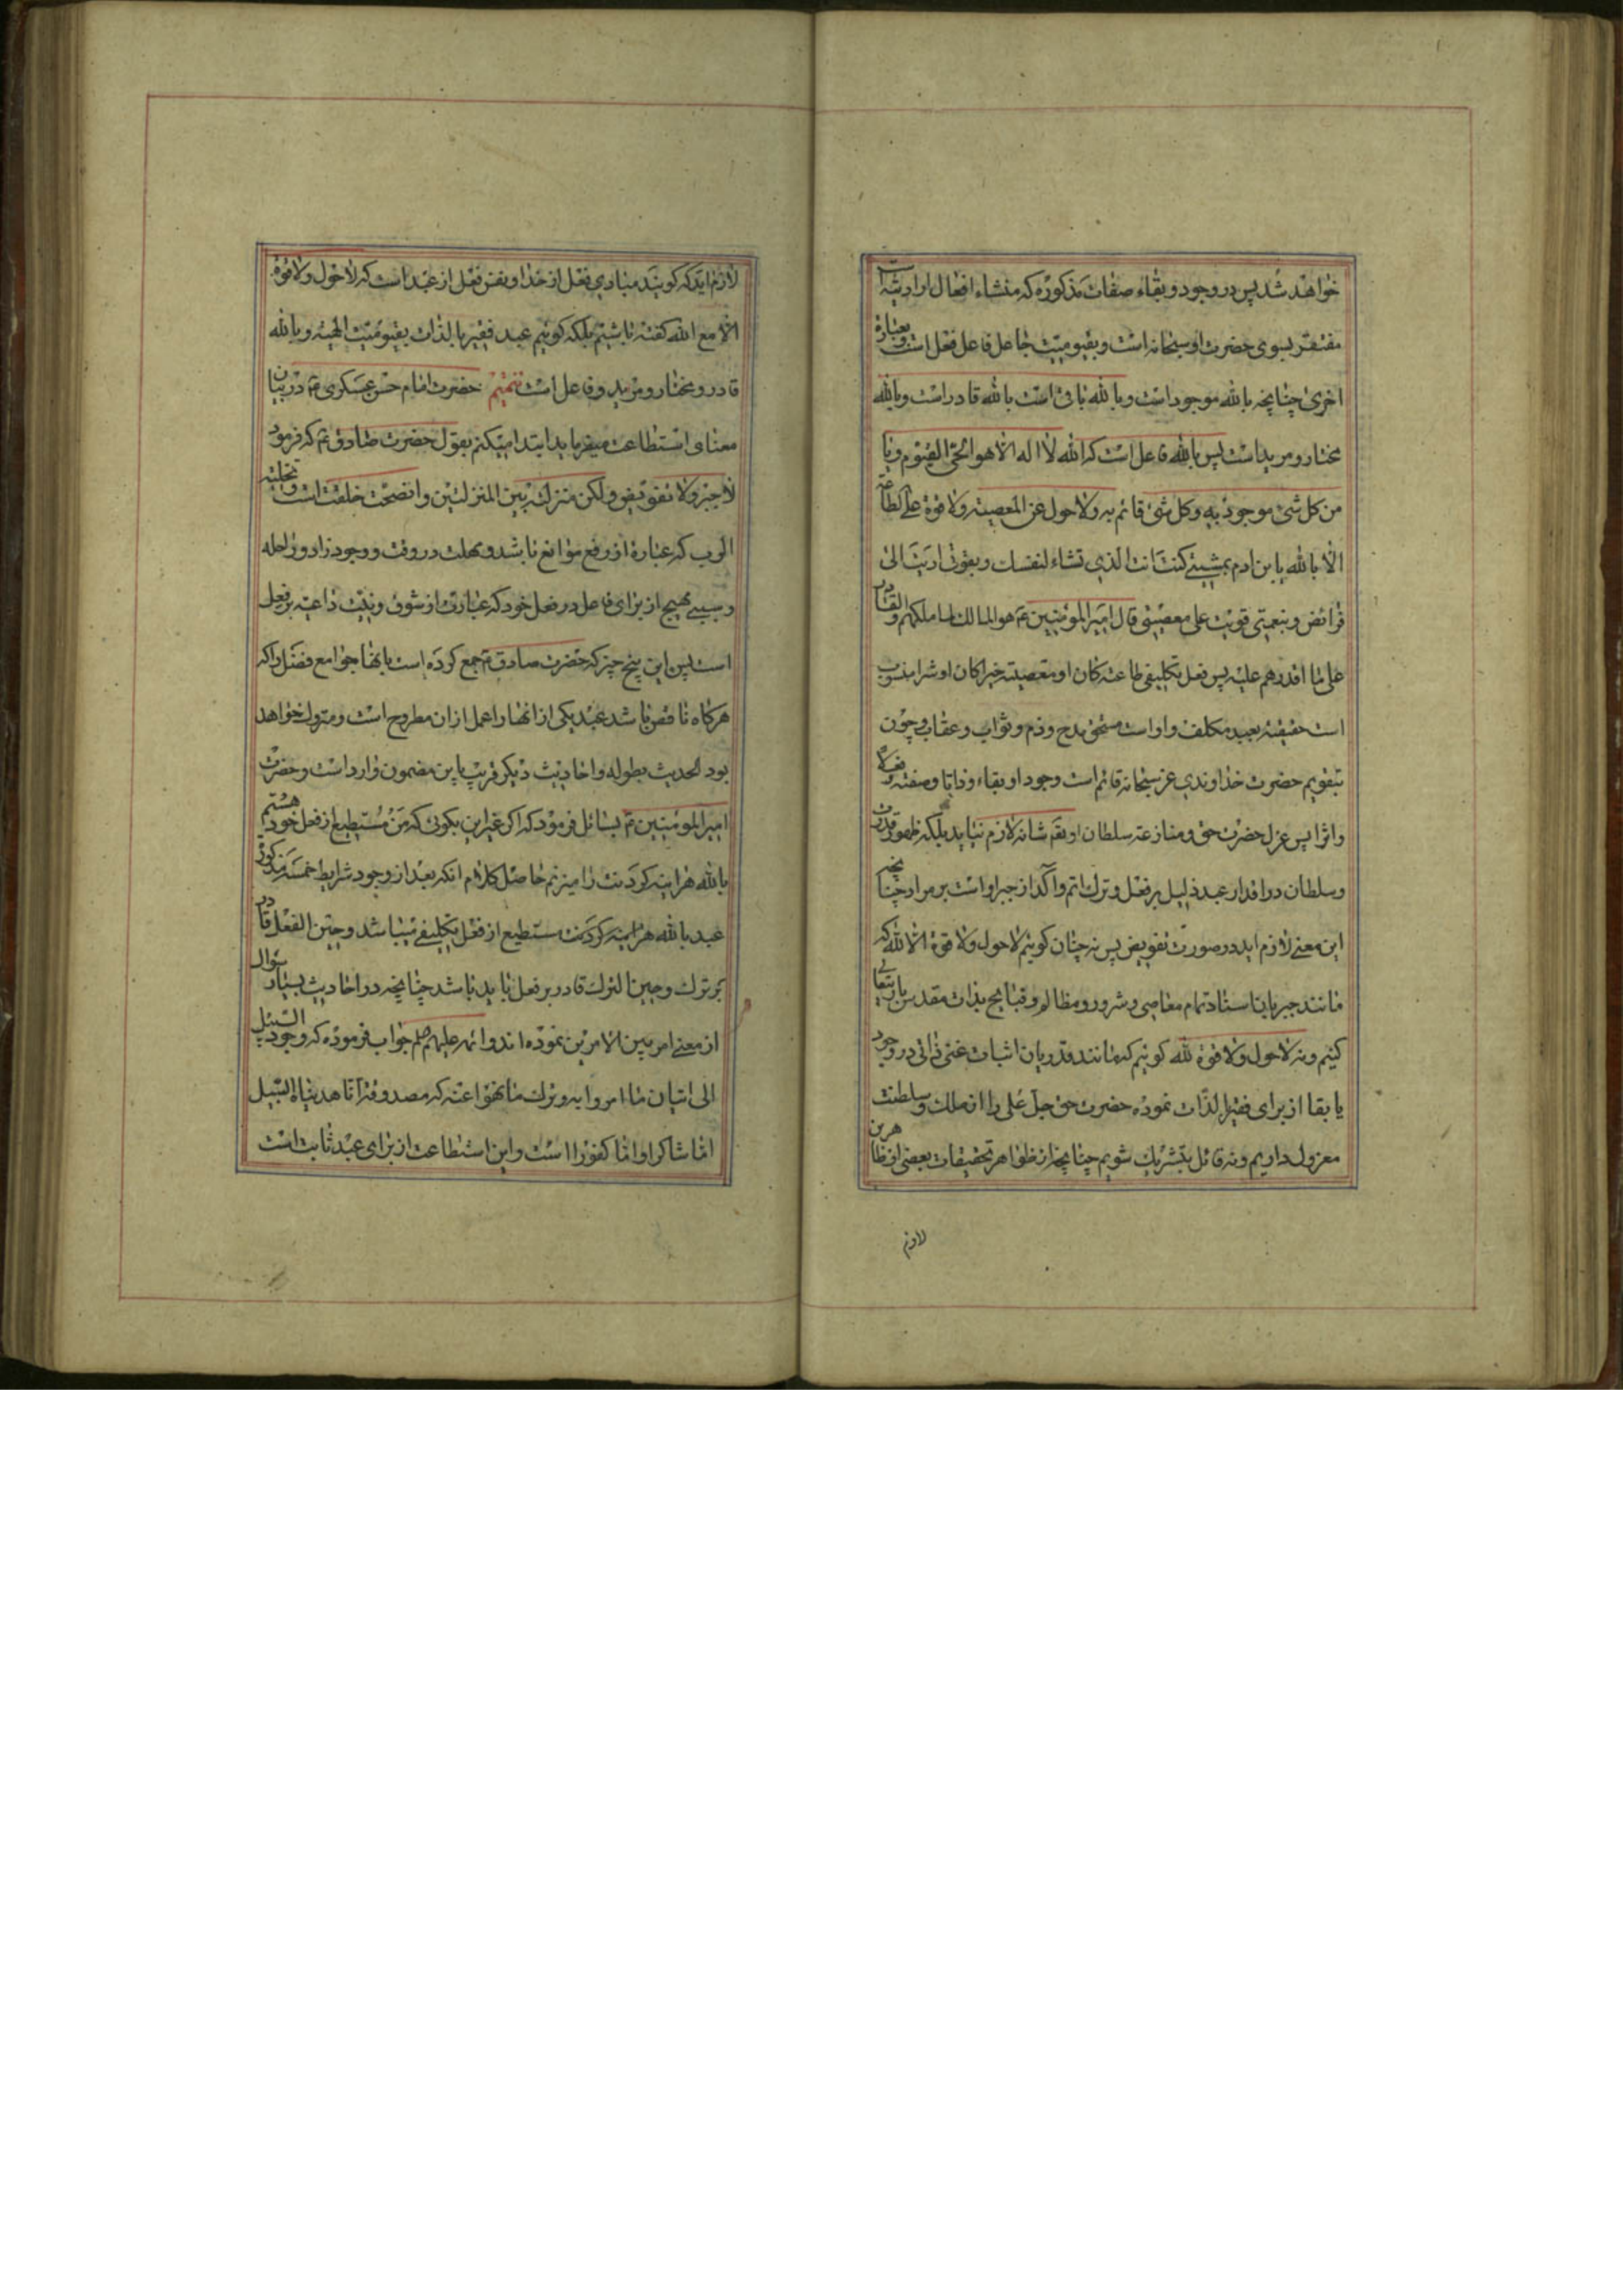 خواهد شد پس در وجود و بقاء صفات مذکوره که منشاء افعال ارادیه است
مفتقر بسوی حضرت او سبحانه است و بقیومیت جاعل فاعل فعل است و بعبارة
اخری چنانچه بالله موجود است و بالله باقی است بالله قادر است و بالله
مختار و مرید است پس بالله فاعل است که الله لا اله الا هو الحی القیوم و یا
من کل شئ موجود به و کل شئ قائم به و لا حول عن المعصیته و لا قوة علی الطاعة
الا بالله یا بن ادم بمشیتی کنت انت الذی تشاء لنفسک و بقوتی ادیت الی
فرائض و بنعمتی قویت علی معصیتی قال امیر المومنین ع هو المالک لما ملکهم و القادر
علی ما اقدرهم علیه پس فعل تکلیفی طاعته کان او معصیته خیرا کان او شرا منسوب
است حقیقة بعبد مکلف و او است مستحق مدح و ذم و ثواب و عقاب و چون
بتقویم حضرت خداوندی عز سبحانه قائم است وجود او بقاء و ذاتا و صفته و فعلا
و اثرا پس عزل حضرت حق و منازعته سلطان او بقم شانه لازم نیاید بلکه ظهور قدرت
و سلطان در اقدار عبد ذلیل بر فعل و ترک اتم و آکد از جبر او است بر مراد چنانچه
این معنی لازم اید در صورت تفویض پس نه چنان کوئیم لا حول و لا قوة الا لله که
مانند جبریان استناد تمام معاصی و شرور و مظالم و قبایح بذات مقدس باریتعالی
کنیم و نه لا حول و لا قوة لله کوئیم که مانند قدریان اثبات غنی ذاتی در وجود
یا بقا از برای فقیر بالذات نموده حضرت حق جل علی را از ملک و سلطنت
معزول داریم و نه قائل بتشریک شویم چنانچه از ظواهر تحقیقات بعضی از ظاهرین
لازم
لازم اید که کویند مبادی فعل از خدا و نفس فعل از عبد است که لا حول و لا قوة
الا مع الله کفته باشیم بلکه کوئیم عبد فقیر بالذات بقیومیت الهیه و بالله
قادر و مختار و مرید و فاعل است تتمیم حضرت امام حسن عسکری ع در بیان
معنای استطاعت میفرماید ابتدا میکنم بقول حضرت صادق ع که فرمود
لا جبر و لا تفویض و لکن منزلة بین المنزلتین و ان صحت خلقت است و تخلیة
السرب که عبارة از رفع موانع باشد و مهلت در وقت و وجود زاد و راحله
و سببی مهیج از برای فاعل در فعل خود که عبارت از شوق و نیت داعیه بر فعل
است پس این پنج چیز که حضرت صادق ع جمع کرده است بانها جوامع فضل را که
هرکاه ناقص باشد عبد یکی از انها را عمل از ان مطروح است و متروک خواهد
بود الحدیث بطوله و احادیث دیکر قریب باین مضمون وارد است و حضرت
امیر المومنین ع بسائل فرمود که اکر غیر این بکوئی که من مستطیع از فعل خود هستم
بالله هراینه کردنت را میزنم حاصل کلام انکه بعد از وجود شرایط خمسه مذکوره
عبد بالله هراینه کردنت مستطیع از فعل تکلیفی میباشد و حین الفعل قادر
بر ترک و حین الترک قادر بر فعل باید باشد چنانچه در احادیث بسیار سوال
از معنی امر بین الامرین نموده اند و ائمه علیهم جواب فرموده که وجود السبیل
الی اتیان ما امروا به و ترک ما نهوا عنه که مصدوقه انا هدیناه السبیل
اما شاکرا و اما کفورا است و این استطاعت از برای عبد ثابت است